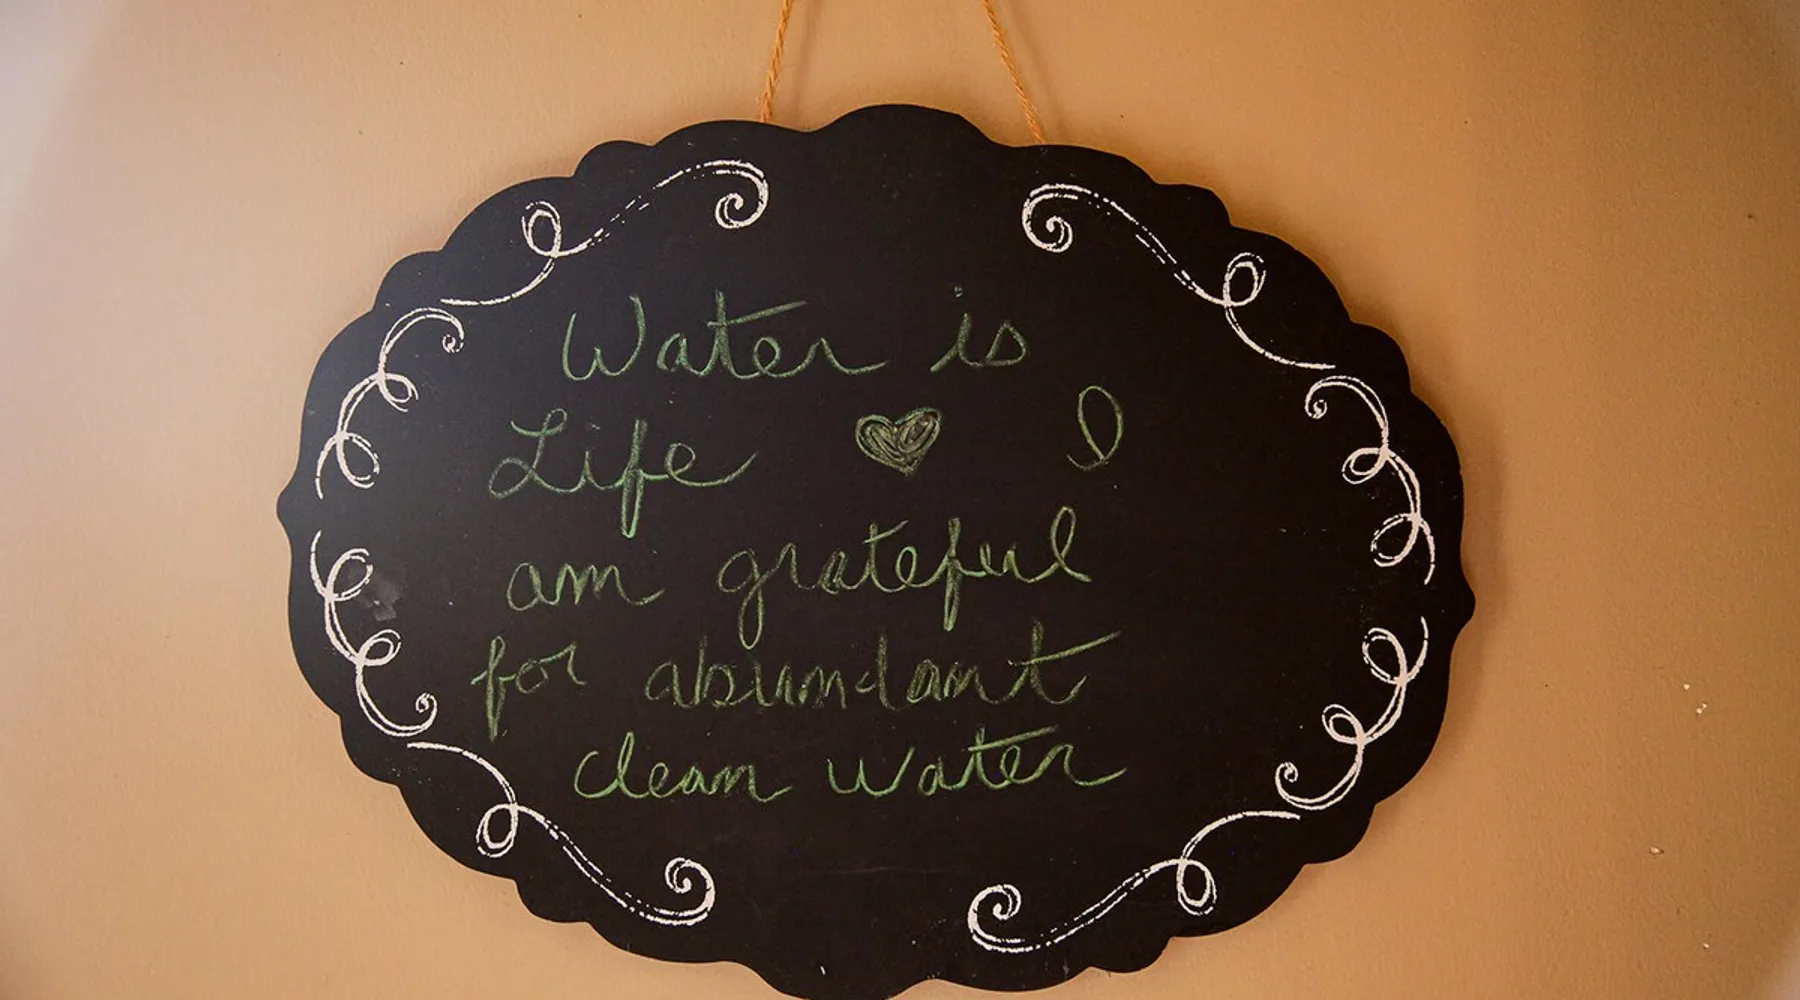 Water is
Life ♥ I
am grateful
for abundant
clean water